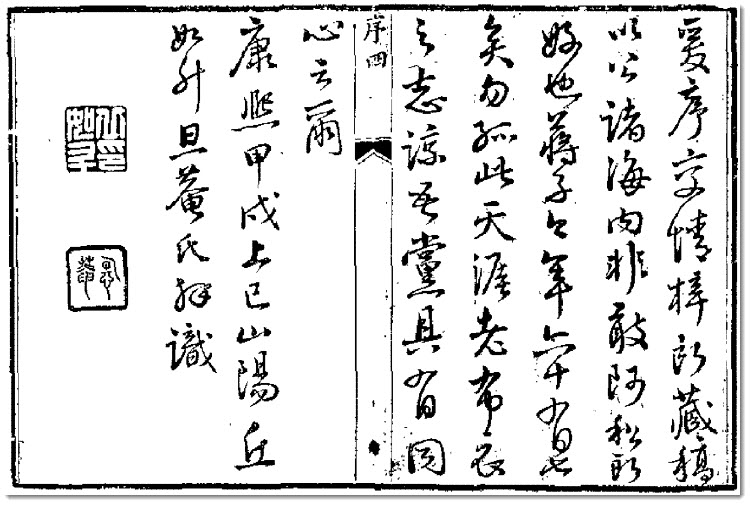 爰序交情梓所藏稿
以公諸海內非敢阿私所
好也蔣子今年六十有七
矣勿孤此天涯老布衣
之志諒吾黨具有同
序四
心云爾
康熙甲戌上巳山陽丘
如升旦菴氏拜識